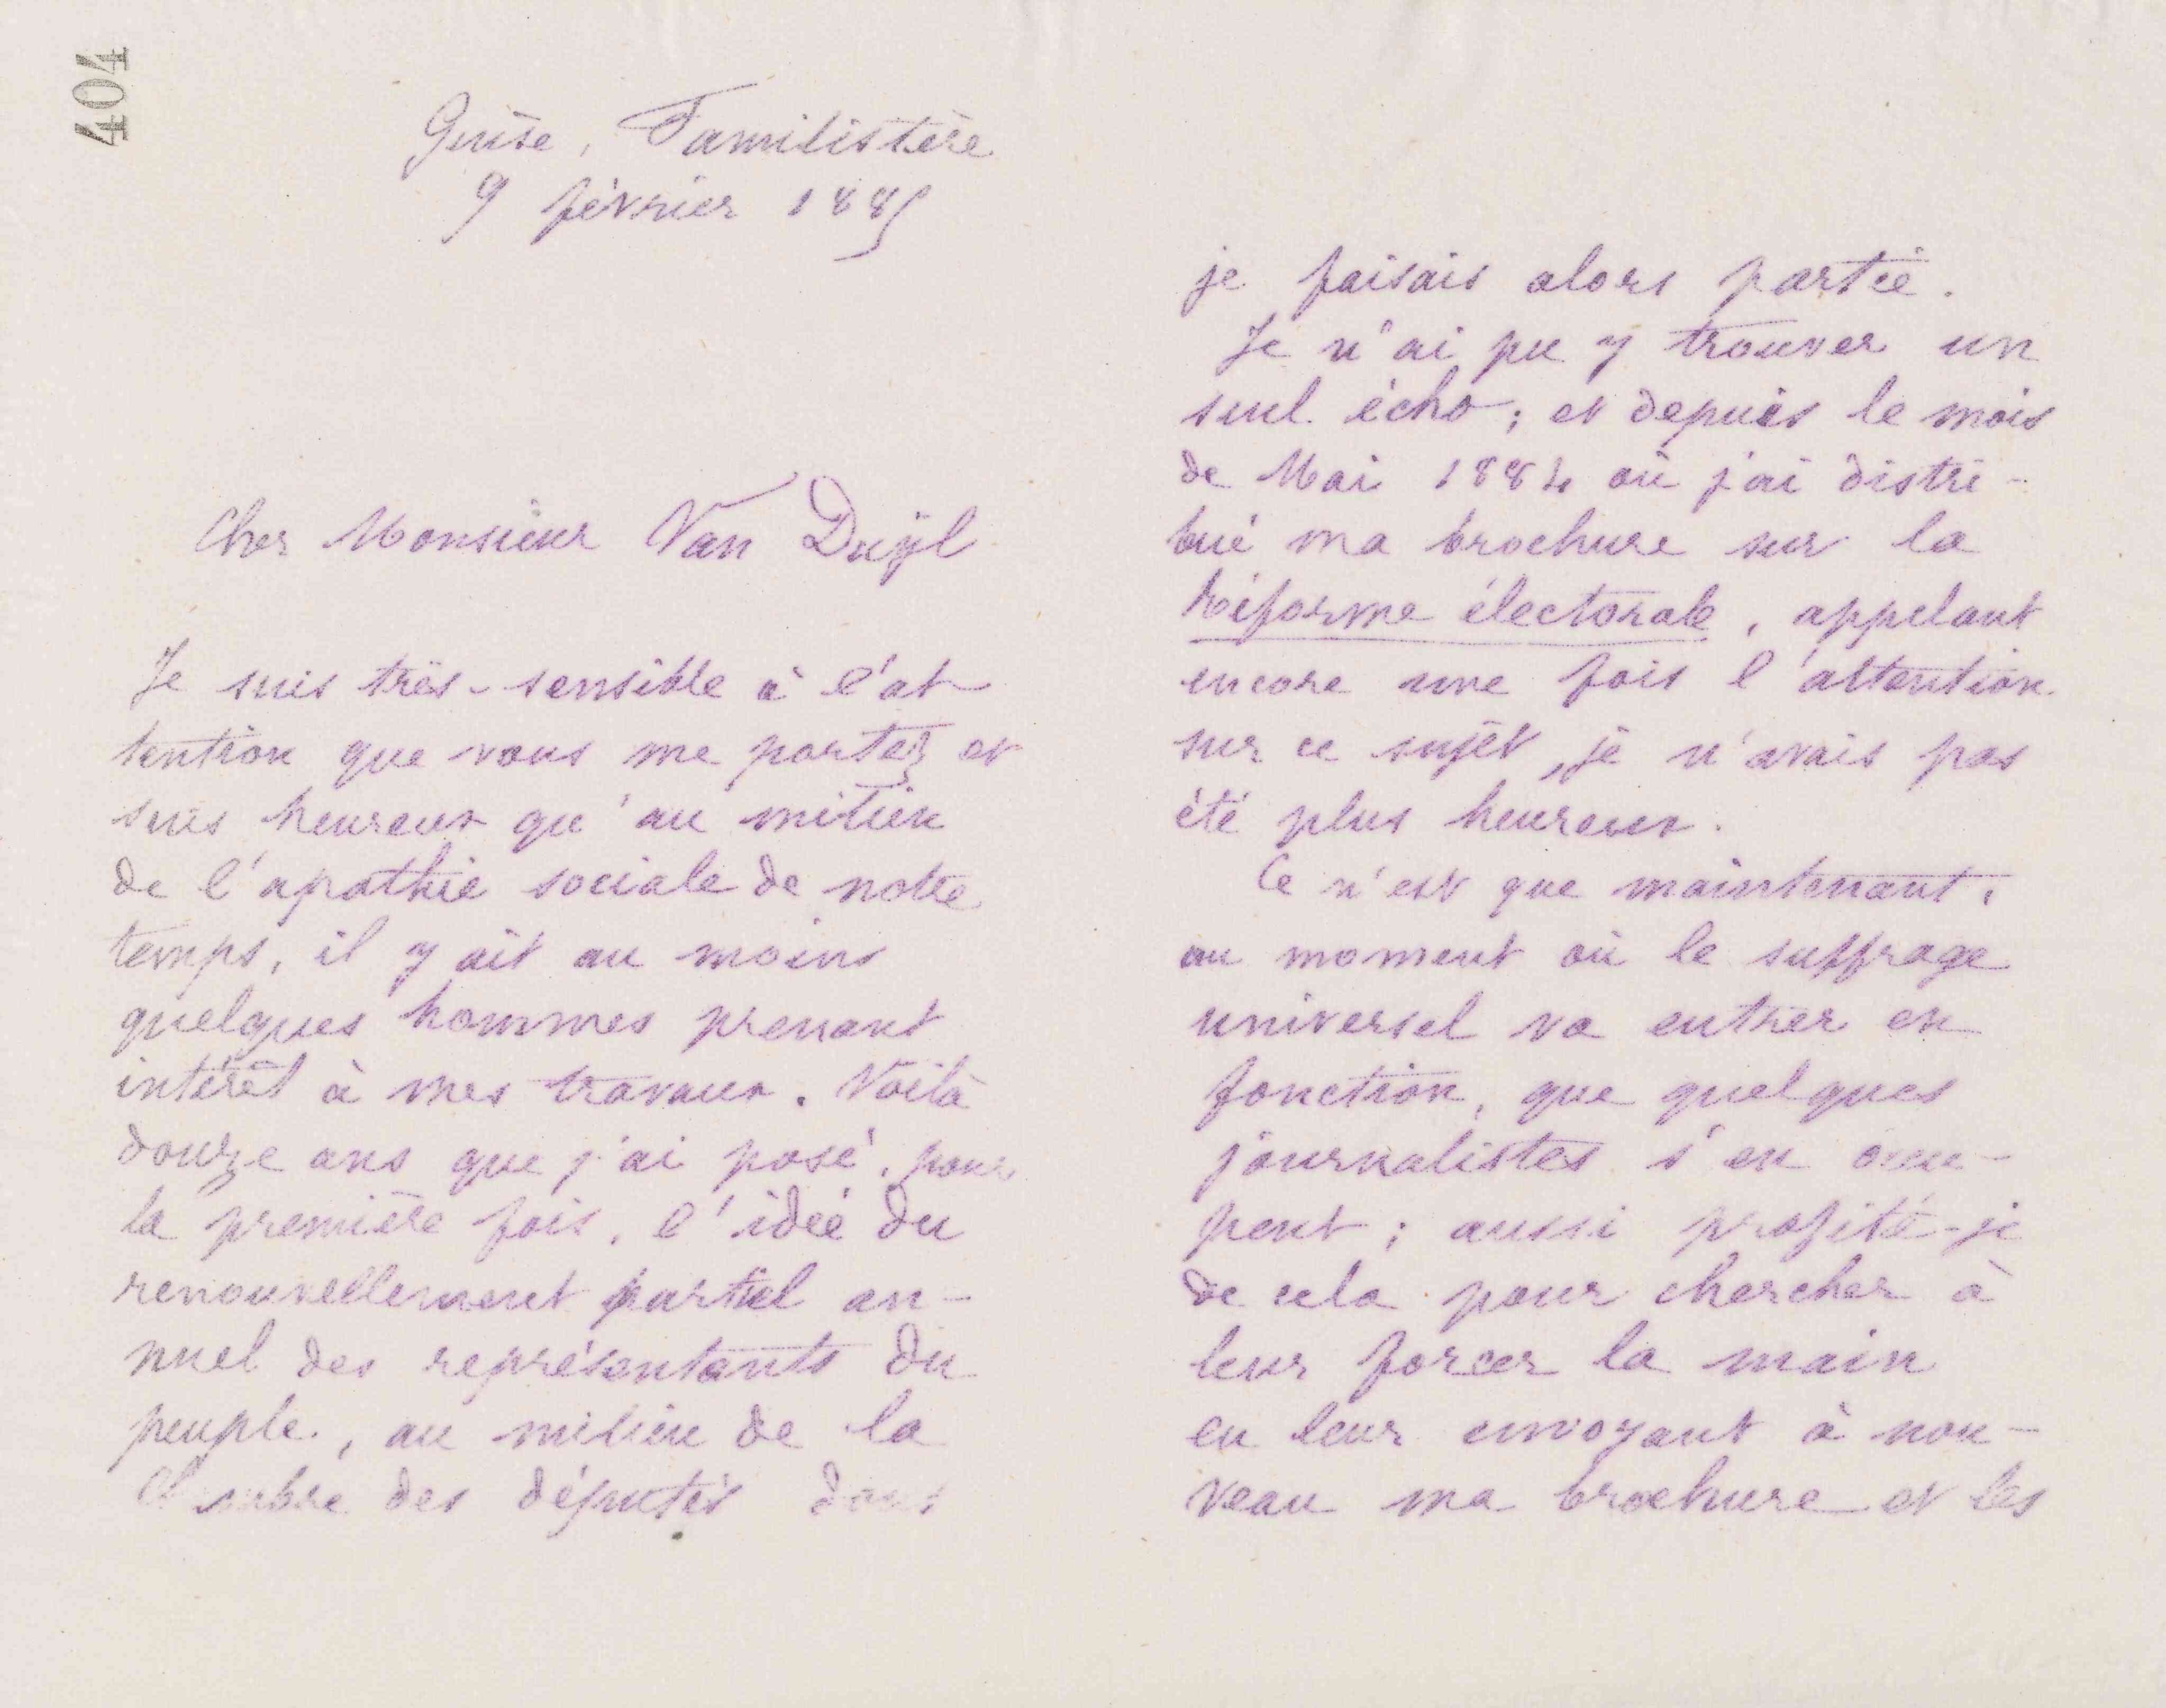 404
Guise, Familistère
9 février 1885
Cher Monsieur Van Duÿl
Je suis très-sensible à l'at
tention que vous me portez et
suis heureux qu'au milieu
de l'apathie sociale de notre
temps, il y ait au moins
quelques hommes prenant
intérêt à mes travaux. Voilà
douze ans que j'ai posé, pour
la première fois, l'idée du
renouvellement partiel an-
nuel des représentants du
peuple, au milieu de la
Chambre des députés dont
je faisais alors partie.
Je n'ai pu y trouver un
seul écho; et depuis le mois
de Mai 1884 où j'ai distri-
bué ma brochure sur la
Réforme électorale, appelant
encore une fois l'attention
sur ce sujet, je n'avais pas
été plus heureux.
Ce n'est que maintenant,
au moment où le suffrage
universel va entrer en
fonction, que quelques
journalistes s'en occu-
pent; aussi profité-je
de cela pour chercher à
leur forcer la main
en leur envoyant à nou-
veau ma brochure et les